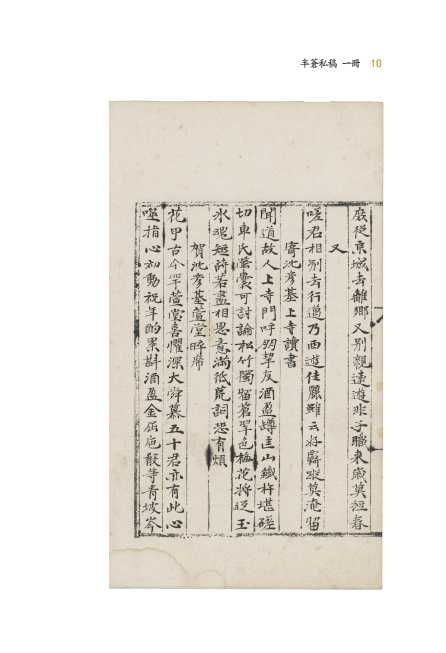 半蒼私稿 一冊 10
底從京城去離鄉又別親遠遊非子職來歲莫經春
又
嗟君相別去行邁乃西遊佳麗雖云好辭蹤莫淹留
寄沈彥基上寺讀書
聞道故人上寺門呼朋挈友酒盈罇圭山纖杵堪磋
切車氏螢囊可討論松竹閣留蒼翠色梅花將返玉
氷魂短詩若盡相思意滿紙荒詞恐有煩
賀沈彥基萱堂晬席
花甲古今罕萱堂喜懼深大舜慕五十君亦有此心
噬指心初動祝年酌累斟酒盈金 散等青坡岑